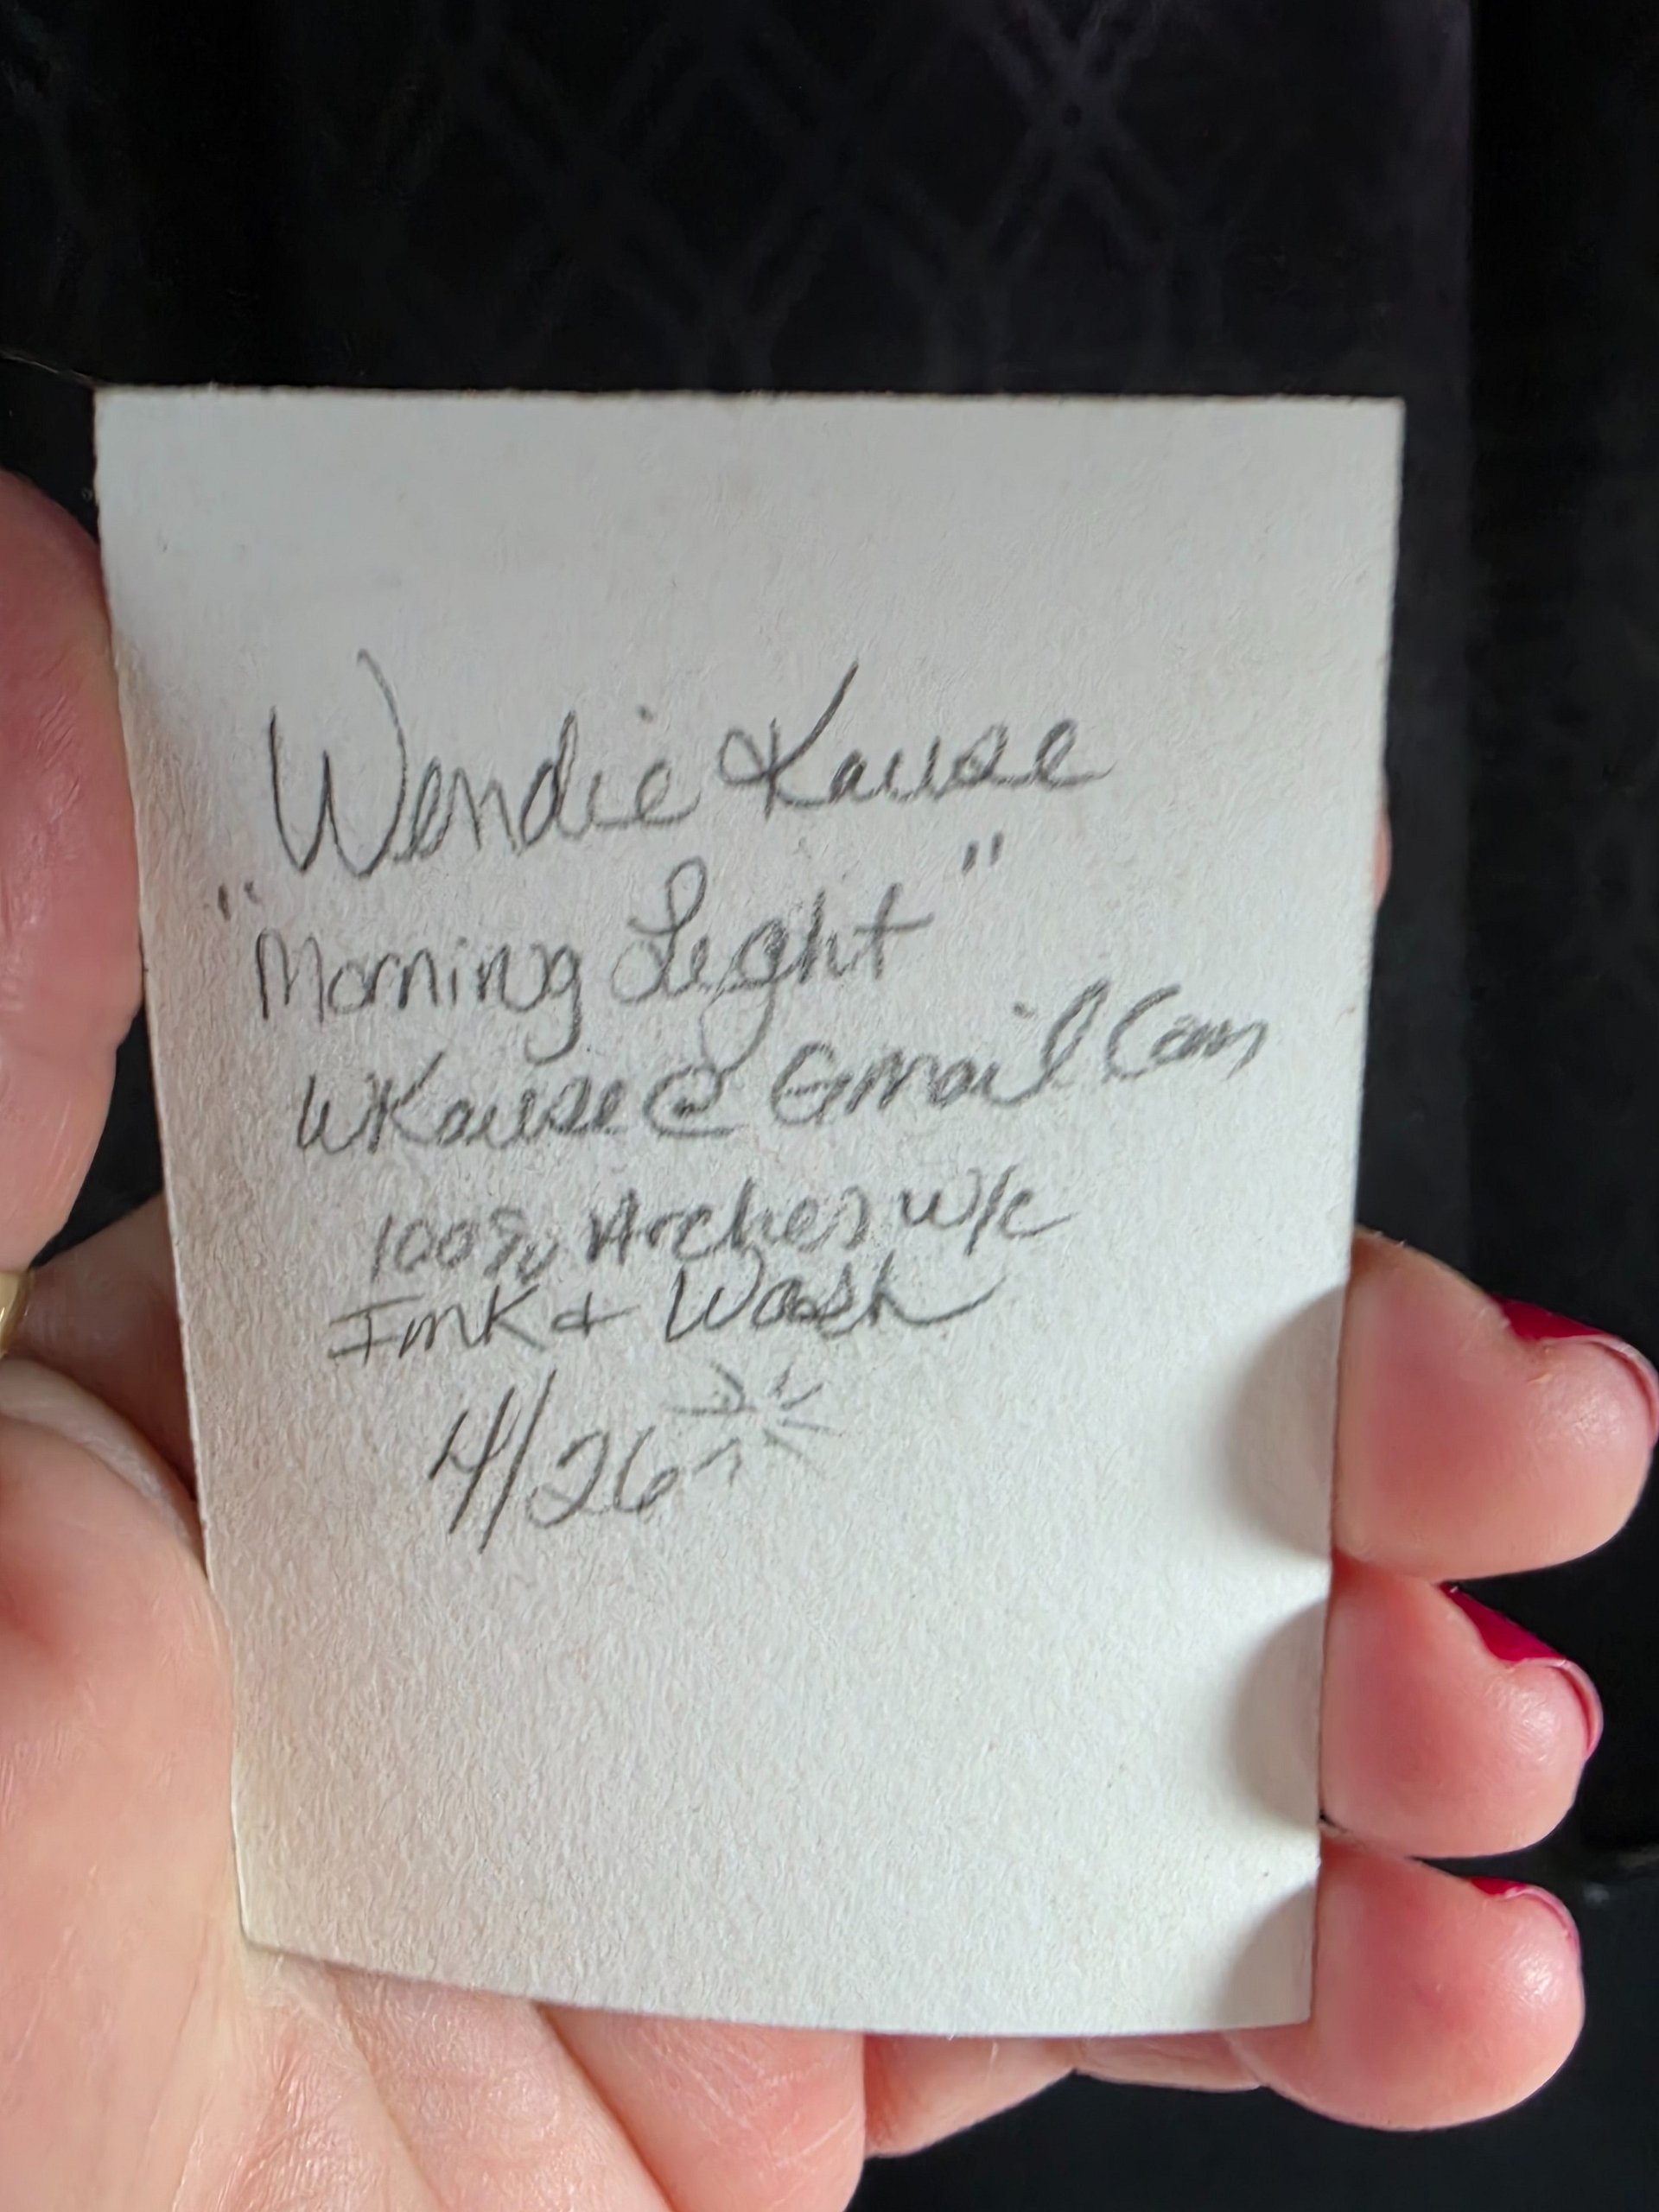 Wendie Kause
"Morning Light"
WKause@Gmail Com
100% Arches w/c
Ink & Wash
4/26